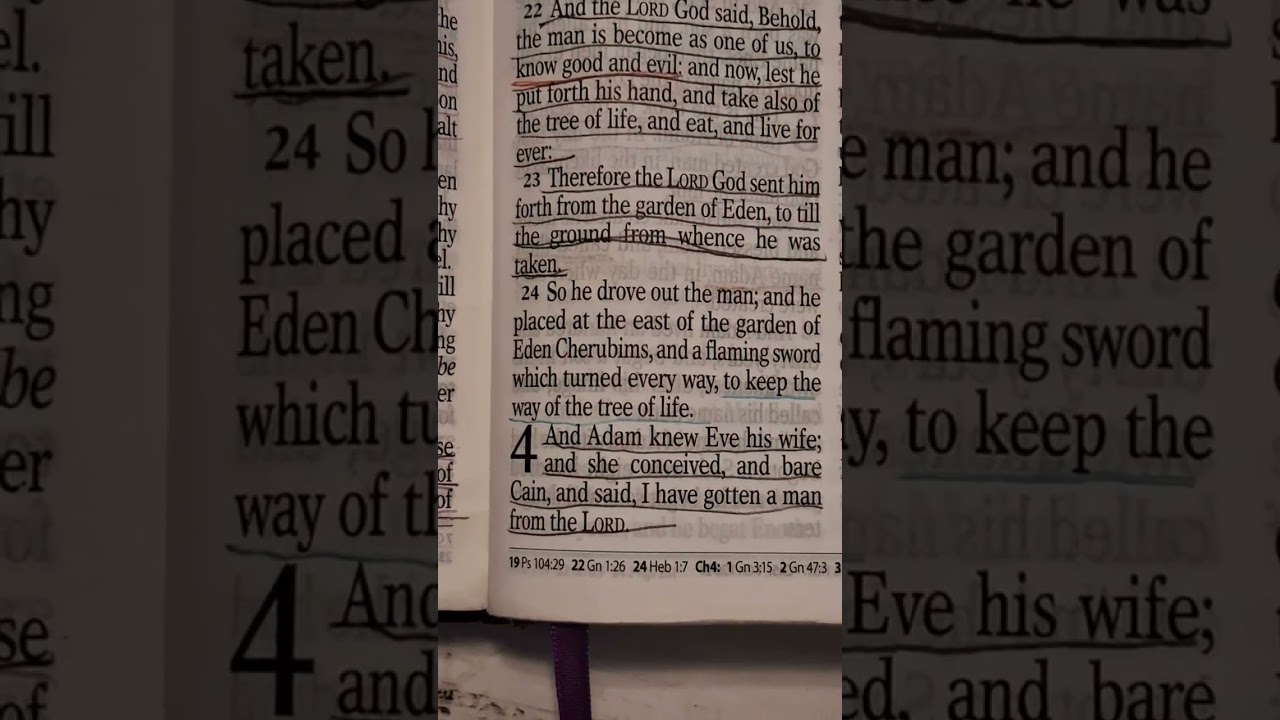 22 And the LORD God said, Behold,
the man is become as one of us, to
know good and evil: and now, lest he
put forth his hand, and take also of
the tree of life, and eat, and live for
ever:
23 Therefore the LORD God sent him
forth from the garden of Eden, to till
the ground from whence he was
taken.
24 So he drove out the man; and he
placed at the east of the garden of
Eden Cherubims, and a flaming sword
which turned every way, to keep the
way of the tree of life.
4 And Adam knew Eve his wife;
and she conceived, and bare
Cain, and said, I have gotten a man
from the LORD.
19 Ps 104:29 22 Gn 1:26 24 Heb 1:7 Ch4: 1 Gn 3:15 2 Gn 47:3 3
taken.
24 So
placed
Eden Ch
which tu
way of th
4 And
and
he was
e man; and he
the garden of
flaming sword
y, to keep the
Eve his wife;
ed, and bare